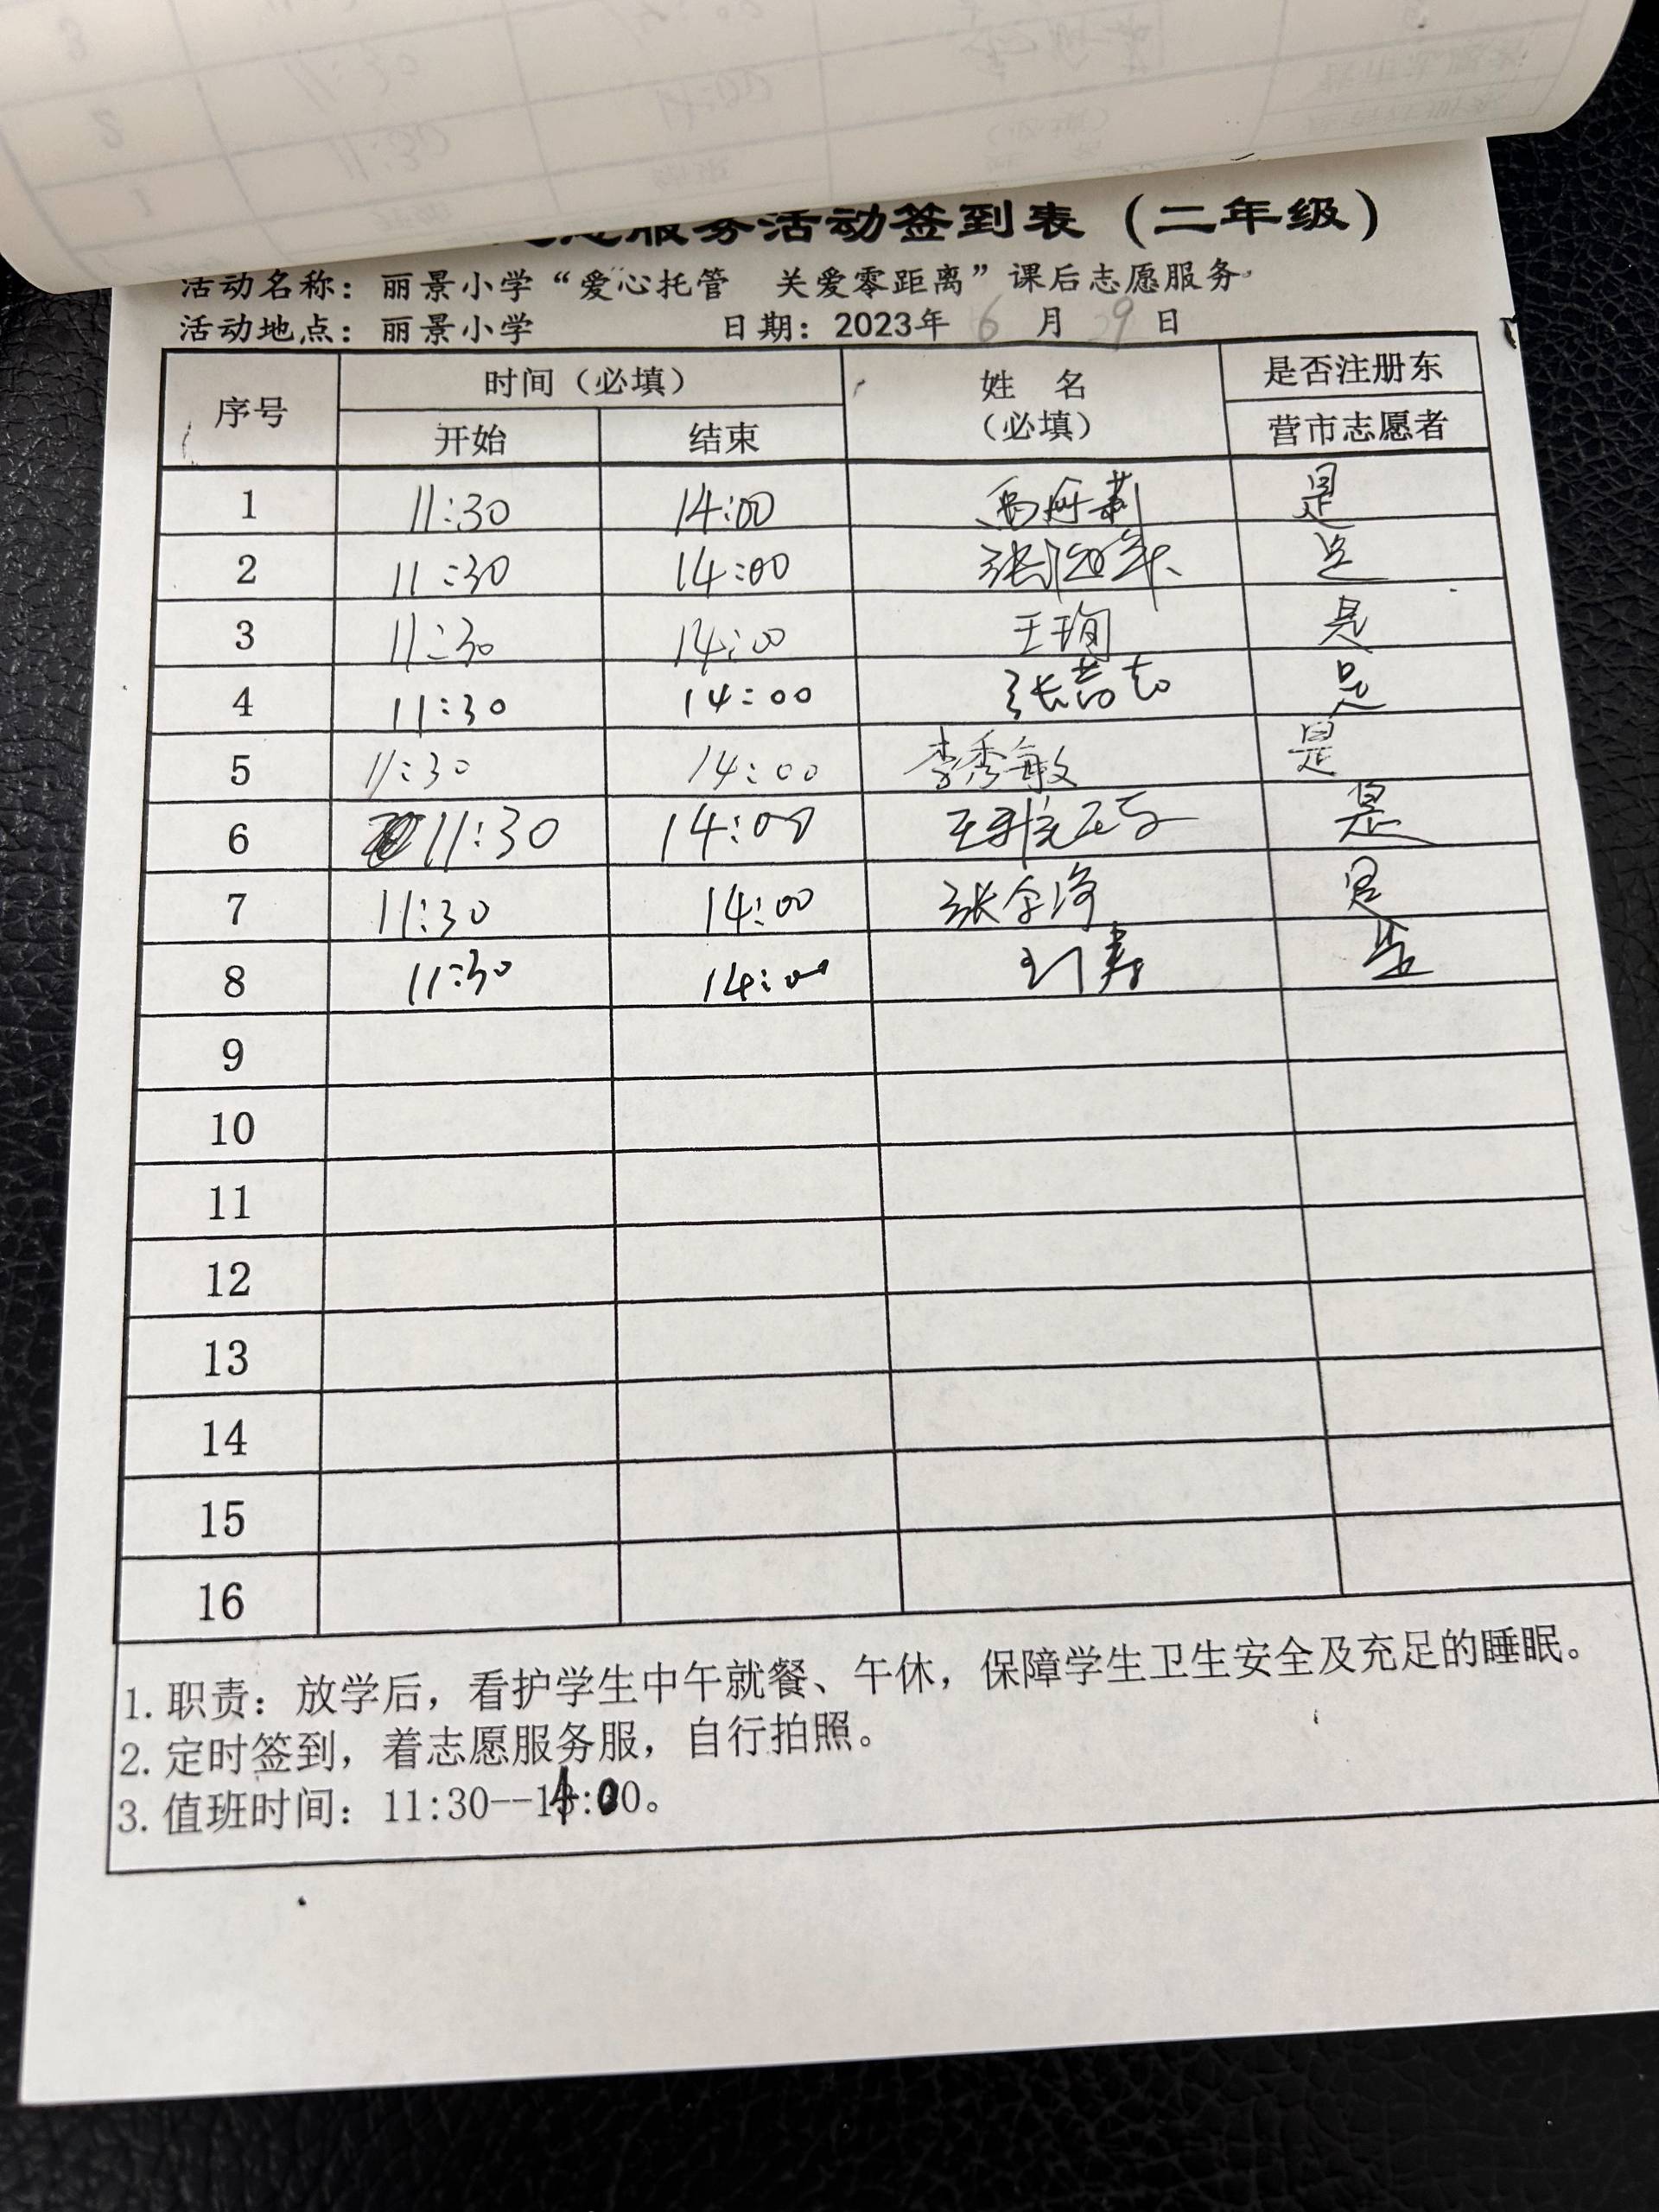 服务活动签到表（二年级）
活动名称：丽景小学“爱心托管 关爱零距离”课后志愿服务
活动地点：丽景小学 日期：2023年 6 月 29 日
序号 时间（必填） 姓名（必填） 是否注册东营市志愿者
开始 结束
1 11:30 14:00 是
2 11:30 14:00 是
3 11:30 14:00 王珣 是
4 11:30 14:00 是
5 11:30 14:00 李秀敏 是
6 11:30 14:00 是
7 11:30 14:00 是
8 11:30 14:00 是
9
10
11
12
13
14
15
16
1. 职责：放学后，看护学生中午就餐、午休，保障学生卫生安全及充足的睡眠。
2. 定时签到，着志愿服务服，自行拍照。
3. 值班时间：11:30--14:00。